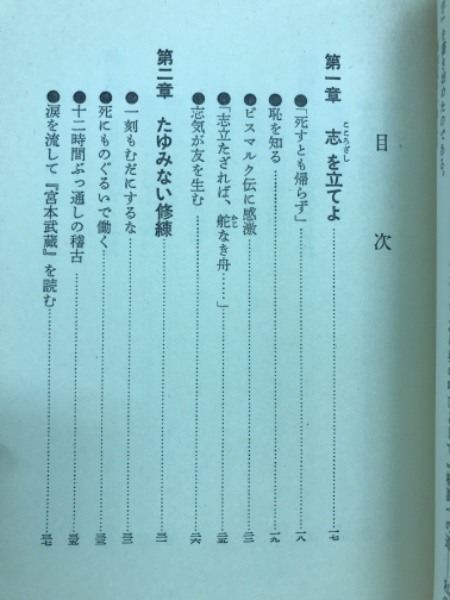 目次
第一章 志を立てよ……一七
●「死すとも帰らず」……一八
●恥を知る……一九
●ビスマルク伝に感激……二二
●「志立たざれば、舵なき舟……」……二五
●志気が友を生む……二六
第二章 たゆみない修練……三一
●一刻もむだにするな……三二
●死にものぐるいで働く……三三
●十二時間ぶっ通しの稽古……三五
●涙を流して『宮本武蔵』を読む……三七